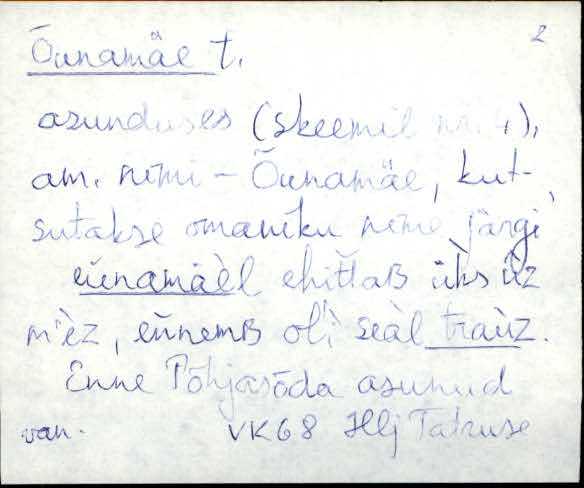 2
Õunamäe t.
asunduses (skeemil nr. 4),
am. nimi – Õunamäe, kut-
sutakse omaniku nime järgi
eùnamäèl ehiťtaʙ ùks ùz
m'èz, eǹnemʙ ol'i seàl traùz.
Enne Põhjasõda asunud
van. VK68 Hlj Tatruse